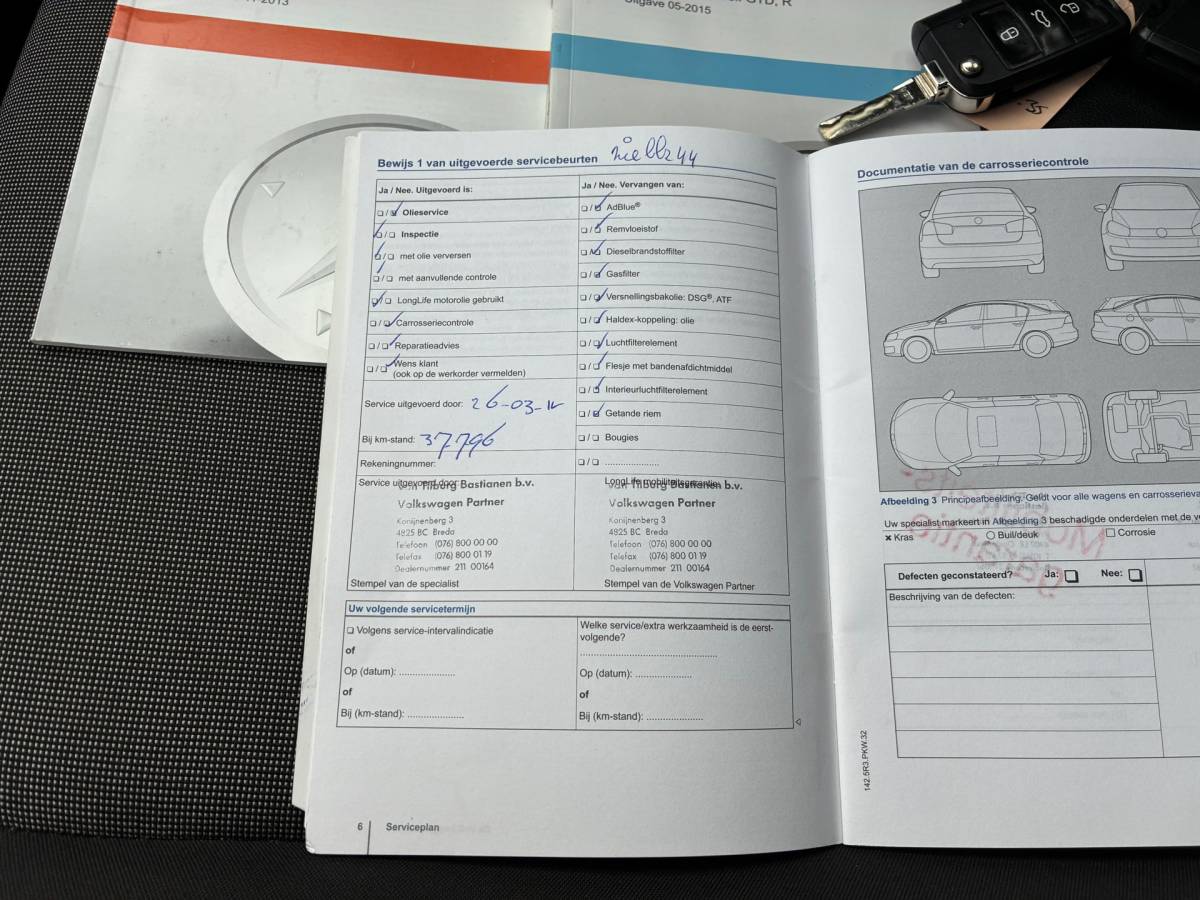 Uitgave 05-2015
Bewijs 1 van uitgevoerde servicebeurten
Ja / Nee. Uitgevoerd is:
Olieservice
Inspectie
met olie verversen
met aanvullende controle
LongLife motorolie gebruikt
Carrosseriecontrole
Reparatieadvies
Wens klant
(ook op de werkorder vermelden)
Service uitgevoerd door: 26-03-
Bij km-stand: 37796
Rekeningnummer:
Service uitgevoerd door:
Tilburg Bastianen b.v.
Volkswagen Partner
Konijnenberg 3
4825 BC Breda
Telefoon (076) 800 00 00
Telefax (076) 800 01 19
Dealernummer 211 00164
Stempel van de specialist
Ja / Nee. Vervangen van:
AdBlue®
Remvloeistof
Dieselbrandstoffilter
Gasfilter
Versnellingsbakolie: DSG®, ATF
Haldex-koppeling: olie
Luchtfilterelement
Flesje met bandenafdichtmiddel
Interieurluchtfilterelement
Getande riem
Bougies
....................
LongLife mobiliteitsgarantie
Tilburg Bastianen b.v.
Volkswagen Partner
Konijnenberg 3
4825 BC Breda
Telefoon (076) 800 00 00
Telefax (076) 800 01 19
Dealernummer 211 00164
Stempel van de Volkswagen Partner
Uw volgende servicetermijn
Volgens service-intervalindicatie
of
Op (datum): ....................
of
Bij (km-stand): ....................
Welke service/extra werkzaamheid is de eerst-
volgende?
Op (datum): ....................
of
Bij (km-stand): ....................
6 Serviceplan
Documentatie van de carrosseriecontrole
Afbeelding 3 Principeafbeelding. Geldt voor alle wagens en
Uw specialist markeert in Afbeelding 3 beschadigde onderdelen met de
Kras Buil/deuk Corrosie
Defecten geconstateerd? Ja: Nee:
Beschrijving van de defecten:
142.5R3.PKW.32